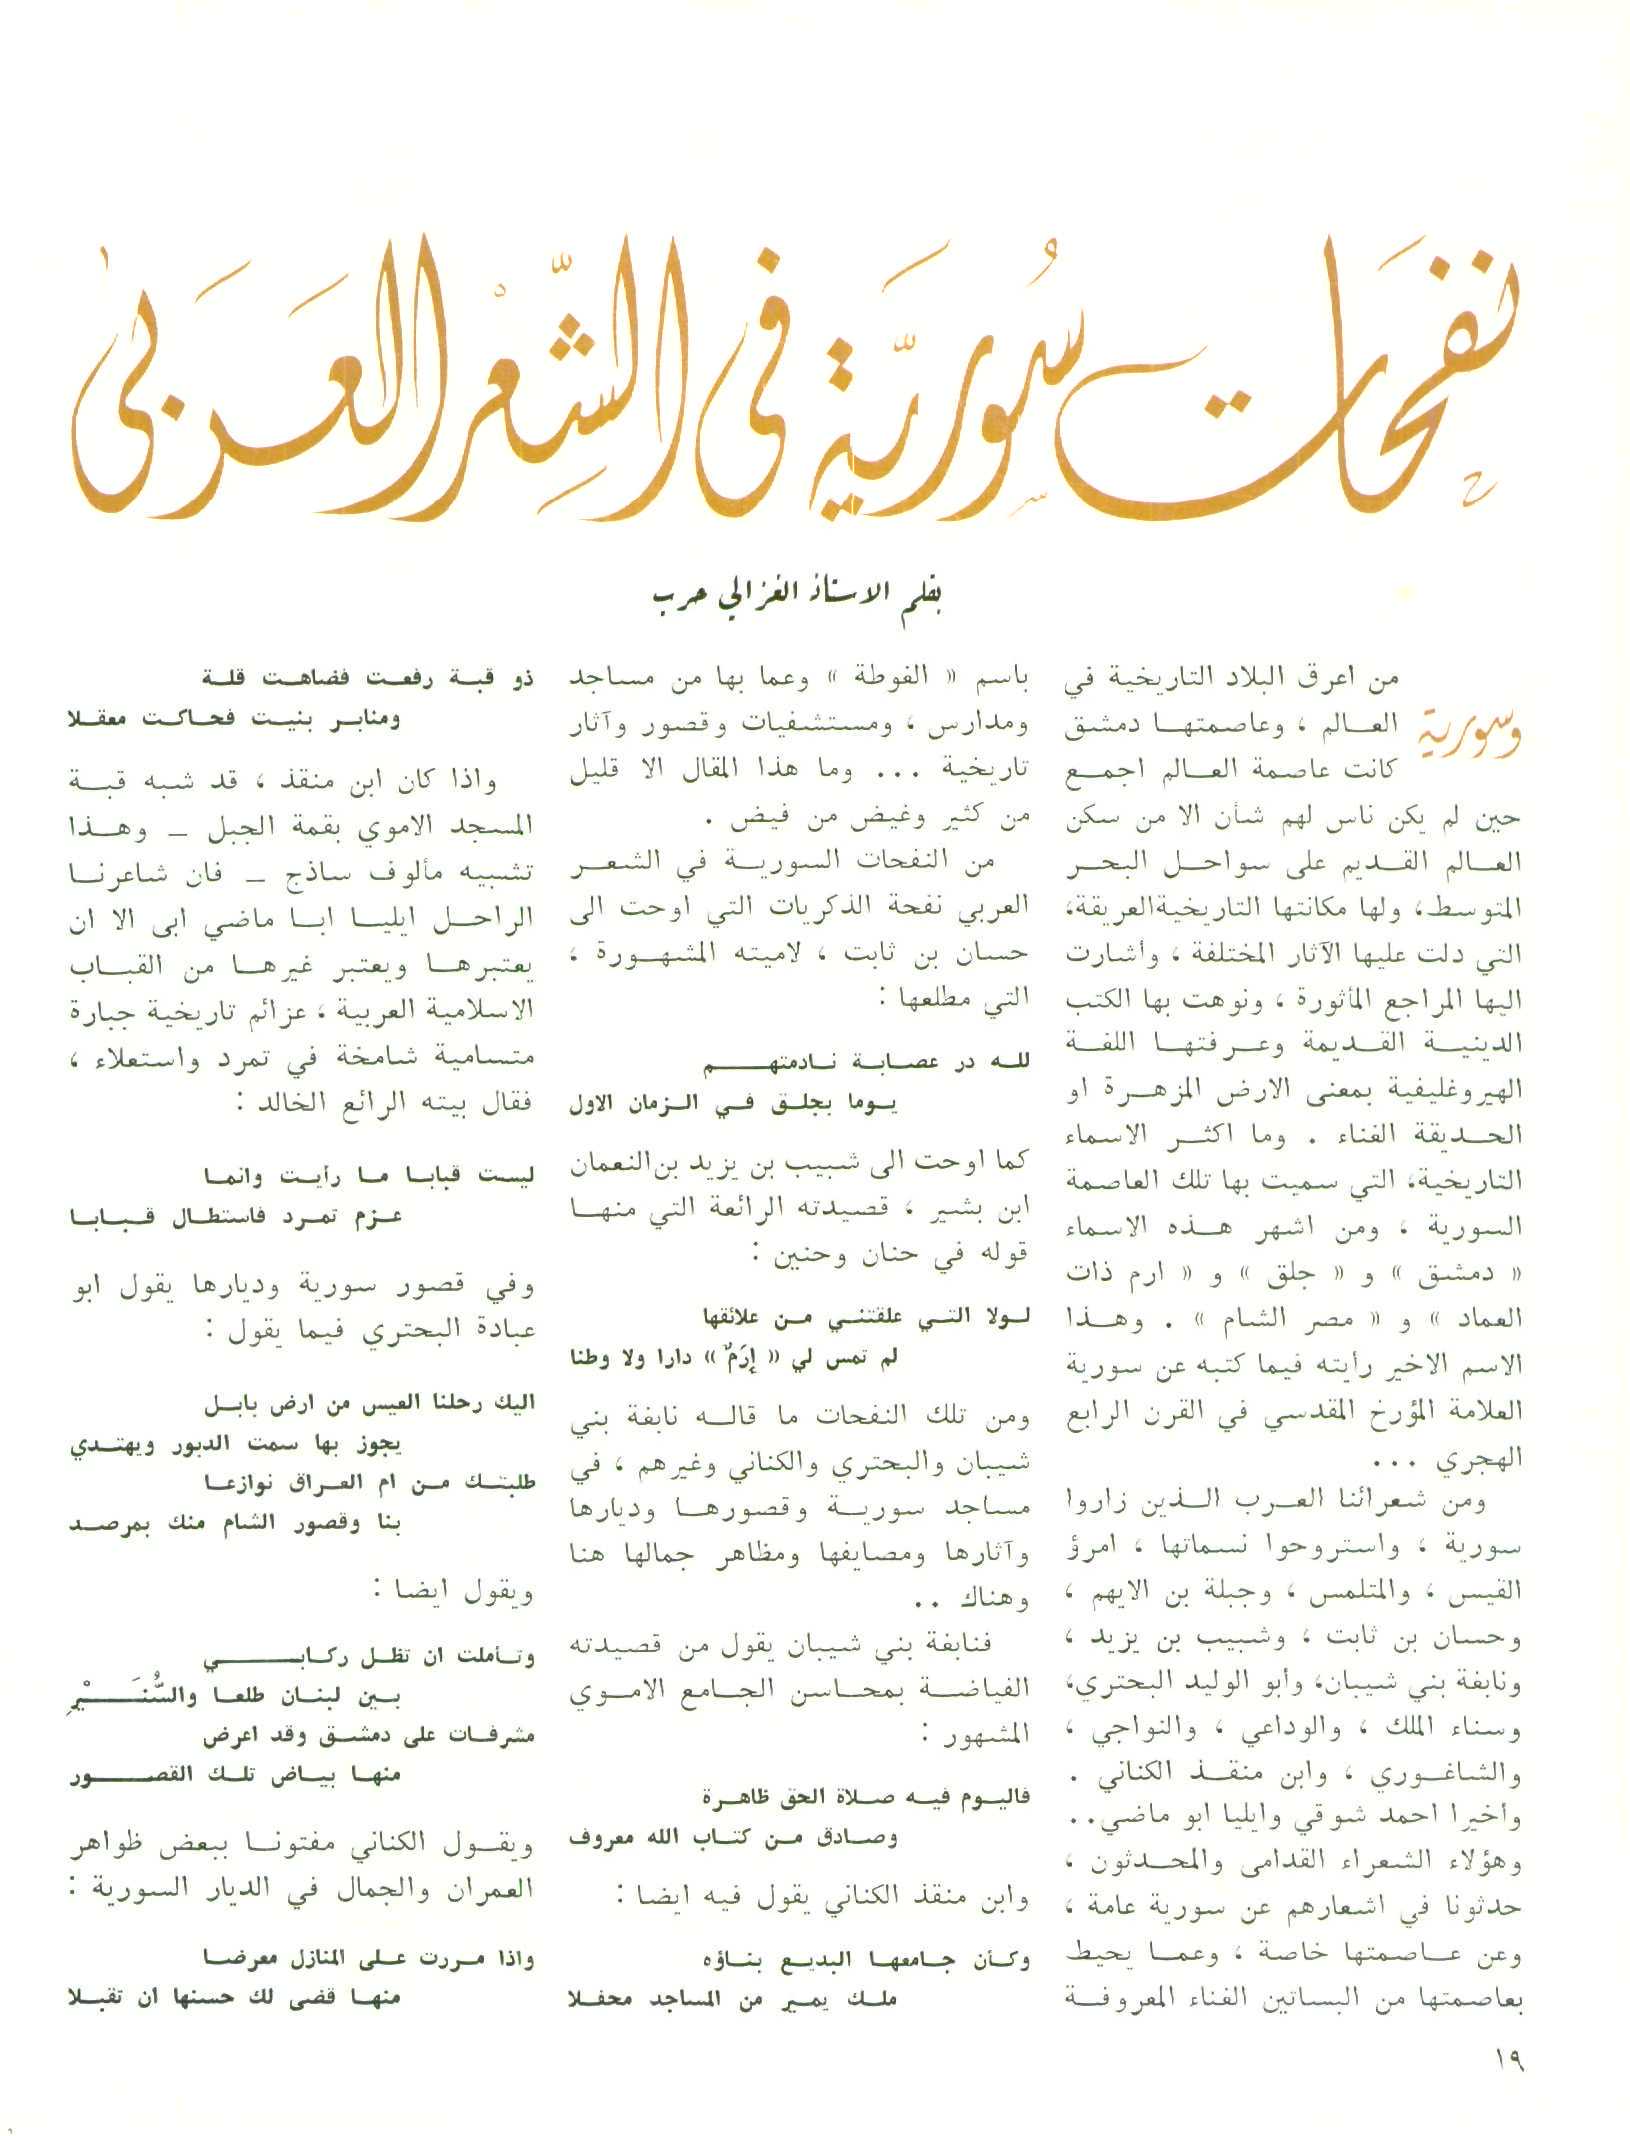 نفحات سورية في الشعر العربي
بقلم الاستاذ الغزالي حرب
وسورية
من اعرق البلاد التاريخية في
العـالم ، وعاصمتهـا دمشق
كانت عاصمة العـالم اجمـع
حين لم يكن ناس لهم شأن الا من سكن
العـالم القـديم على سواحـل البحـر
المتوسط، ولها مكانتها التاريخيةالعريقة،
التي دلت عليها الآثار المختلفة ، وأشارت
اليها المراجع المأثورة ، ونوهت بها الكتب
الدينيـة القـديمة وعـرفتهـا اللغـة
الهيروغليفية بمعنى الارض المزهـرة او
الحـديقة الغناء . وما اكثـر الاسماء
التاريخية، التي سميت بها تلك العاصمة
السورية ، ومن اشهر هـذه الاسماء
« دمشق » و « جلق » و « ارم ذات
العماد » و « مصر الشام » . وهـذا
الاسم الاخير رأيته فيما كتبه عن سورية
العلامة المؤرخ المقدسي في القرن الرابع
الهجري ...
ومن شعرائنا العـرب الـذين زاروا
سورية ، واستروحوا نسماتها ، امرؤ
القيس ، والمتلمس ، وجبلة بن الايهم ،
وحسان بن ثابت ، وشبيب بن يزيد ،
ونابغة بني شيبان، وأبو الوليد البحتري،
وسناء الملك ، والوداعي ، والنواجي ،
والشاغـوري ، وابن منقـذ الكناني .
وأخيرا احمد شوقي وايليا ابو ماضي..
وهؤلاء الشعراء القدامى والمحـدثون ،
حدثونا في اشعارهم عن سورية عامة ،
وعن عـاصمتها خاصة ، وعمـا يحيط
بعاصمتها من البساتين الغناء المعروفـة
باسم « الغوطة » وعما بها من مساجد
ومدارس ، ومستشفيات وقصور وآثار
تاريخية ... وما هذا المقال الا قليل
من كثير وغيض من فيض .
من النفحات السوريـة في الشعـر
العربي نفحة الذكريات التي اوحت الى
حسان بن ثابت ، لاميته المشهـورة ،
التي مطلعها :
للـه در عصـابـة نـادمتهـم
يـوما بجلـق فـي الـزمان الاول
كما اوحت الى شبيب بن يزيد بن‌النعمان
ابن بشير ، قصيدته الرائعة التي منهـا
قوله في حنان وحنين :
لـولا التـي علقتنـي مـن علائقها
لم تمس لي « إرَمٌ » دارا ولا وطنا
ومن تلك النفحات ما قالـه نابغة بني
شيبان والبحتري والكناني وغيرهم ، في
مساجد سورية وقصورهـا وديارها
وآثارها ومصايفها ومظاهر جمالها هنا
وهناك ..
فنابغة بني شيبان يقول من قصيدته
الفياضـة بمحـاسن الجـامع الامـوي
المشهور :
فاليـوم فيـه صـلاة الحق ظاهـرة
وصـادق مـن كتـاب الله معروف
وابن منقذ الكناني يقول فيه ايضا :
وكـأن جـامعهـا البديـع بنـاؤه
ملـك يميـر من المساجد محفـلا
ذو قبـة رفعـت فضاهـت قلـة
ومنابـر بنيـت فحاكـت معقـلا
واذا كان ابن منقذ ، قد شبه قبـة
المسجد الاموي بقمة الجبل ــ وهـذا
تشبيه مألوف ساذج ــ فان شاعرنـا
الراحـل ايليـا ابـا ماضي ابى الا ان
يعتبرهـا ويعتبر غيرهـا من القبـاب
الاسلامية العربية ، عزائم تاريخية جبارة
متسامية شامخة في تمرد واستعلاء ،
فقال بيته الرائع الخالد :
ليسـت قبابـا مـا رأيـت وانمـا
عـزم تمـرد فاستطـال قـبـابـا
وفي قصور سورية وديارها يقول ابو
عبادة البحتري فيما يقول :
اليك رحلنا العيس من ارض بابـل
يجوز بها سمت الدبور ويهتـدي
طلبتـك مـن ام العـراق نوازعـا
بنا وقصور الشام منك بمرصـد
ويقول ايضـا :
وتـأملت ان تظـل ركـابـي
بـين لبنـان طلعـا والسُّنَـيْرِ
مشرفـات على دمشـق وقد اعرض
منهـا بيـاض تلـك القصـور
ويقـول الكناني مفتونـا ببعض ظواهر
العمران والجمال في الديار السورية :
واذا مـررت علـى المنازل معرضـا
منهـا قضى لك حسنها ان تقبـلا
١٩